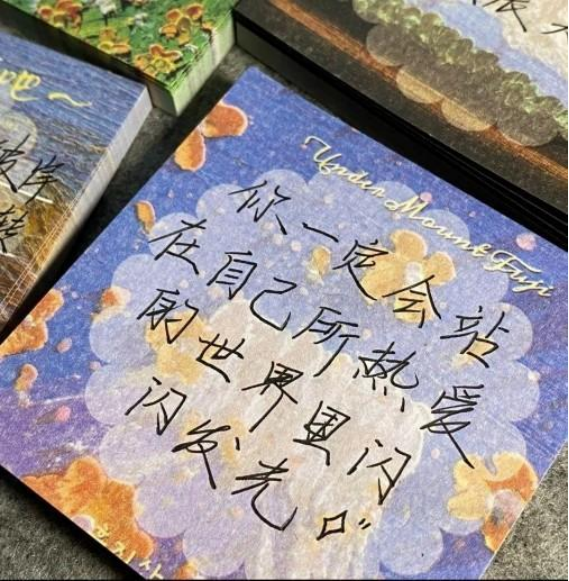 Under Mount Fuji
你一定会站
在自己所热爱
的世界里闪
闪发光。”
吧~
후지산